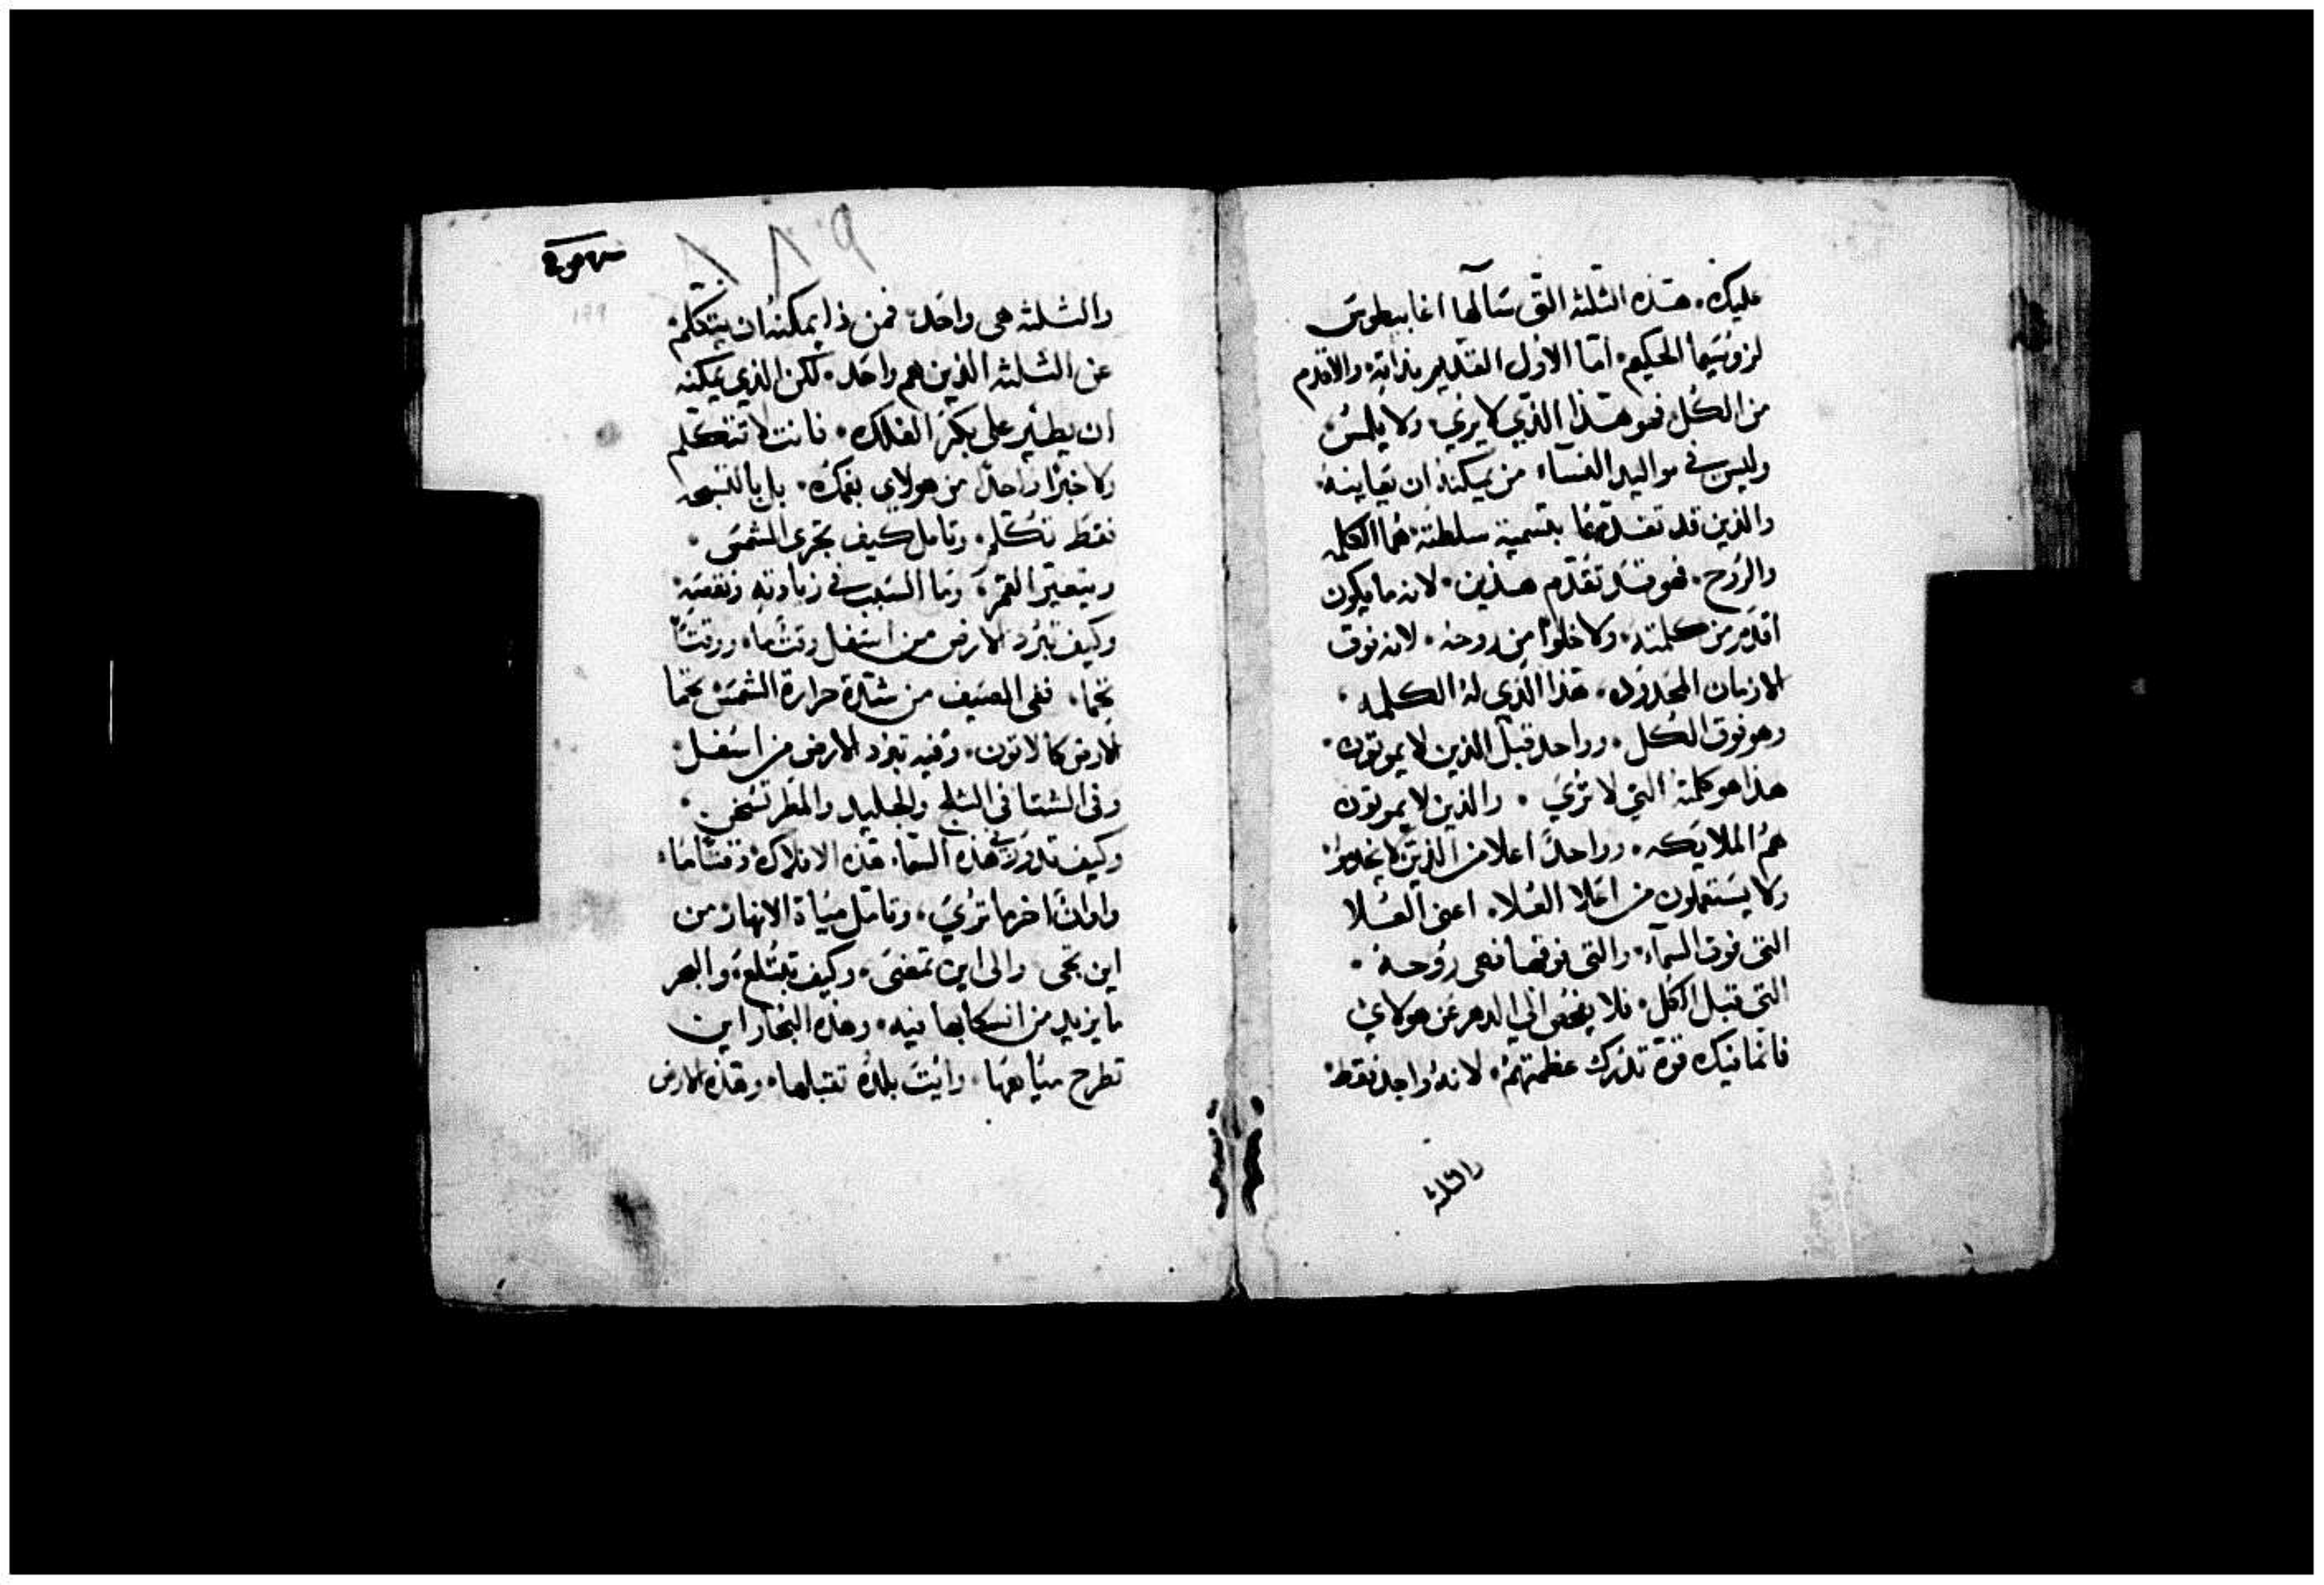 عليك. هذه الثلثه التى سآلها اغابيطوس
لزوسيما الحكيم. اما الاول القديم بذاته. والاقدم
من الكل فهو هذا الذي لا يري. ولا يلمس
وليس في مواليد النساء من يمكنه ان يعاينه.
والذين قد تقدمهما بتسمية سلطته. هما الكلمه
والروح. فهو قد تقدم هذين. لانه ما يكون
اقدم من كلمته. ولا خلوا من روحه. لانه فوق
الازمان المحدوده. هذا الذي له الكلمه.
وهو فوق الكل. وواحد قبل الذين لا يموتون.
هذا هو كلمته التي لا تري. والذين لا يموتون
هم الملايكه. وواحد اعلا من الذين لا يخدموا.
ولا يستعملون من اعلا العلا. اعنى العلا
التى فوق السمآء. والتى فوقها فهى روحه.
التى قبل الكل. فلا يفحص الي الدهر عن هولاي
فانما فيك قوة تدرك عظمتهم. لانه واحد فقط.
والثلثه
والثلثه هى واحد. فمن ذا يمكنه ان يتكلم.
عن الثلثه الذين هم واحد. لكن الذي يمكنه
ان يطير على بكر الفلك. فانت لا تتكلم
ولا خبرا واحدا من هولاي بفمك. بل بالتسبحه
فقط تكلم. وتامل كيف تجرى الشمس.
ويتغير القمر. وما السبب في زيادته ونقصه.
وكيف تبرد الارض من اسفل وقتا ما. ووقتا
تحما. ففى الصيف من شدة حرارة الشمس تحما
الارض كالاتون. وفيه تبرد الارض من اسفل.
وفى الشتا في الثلج والجليد والمطر تسخن.
وكيف تدور في هذه السما. هذه الافلاك وقتا ما.
واوقاتا اخر ما تري. وتامل مياة الانهار من
اين تجى والى اين تمضى. وكيف تبتلع. والبحر
ما يزيد من انسكابها فيه. وهذه البخار اين
تطرح مياهها. وايت بلده تقبلها. وهذه الارض